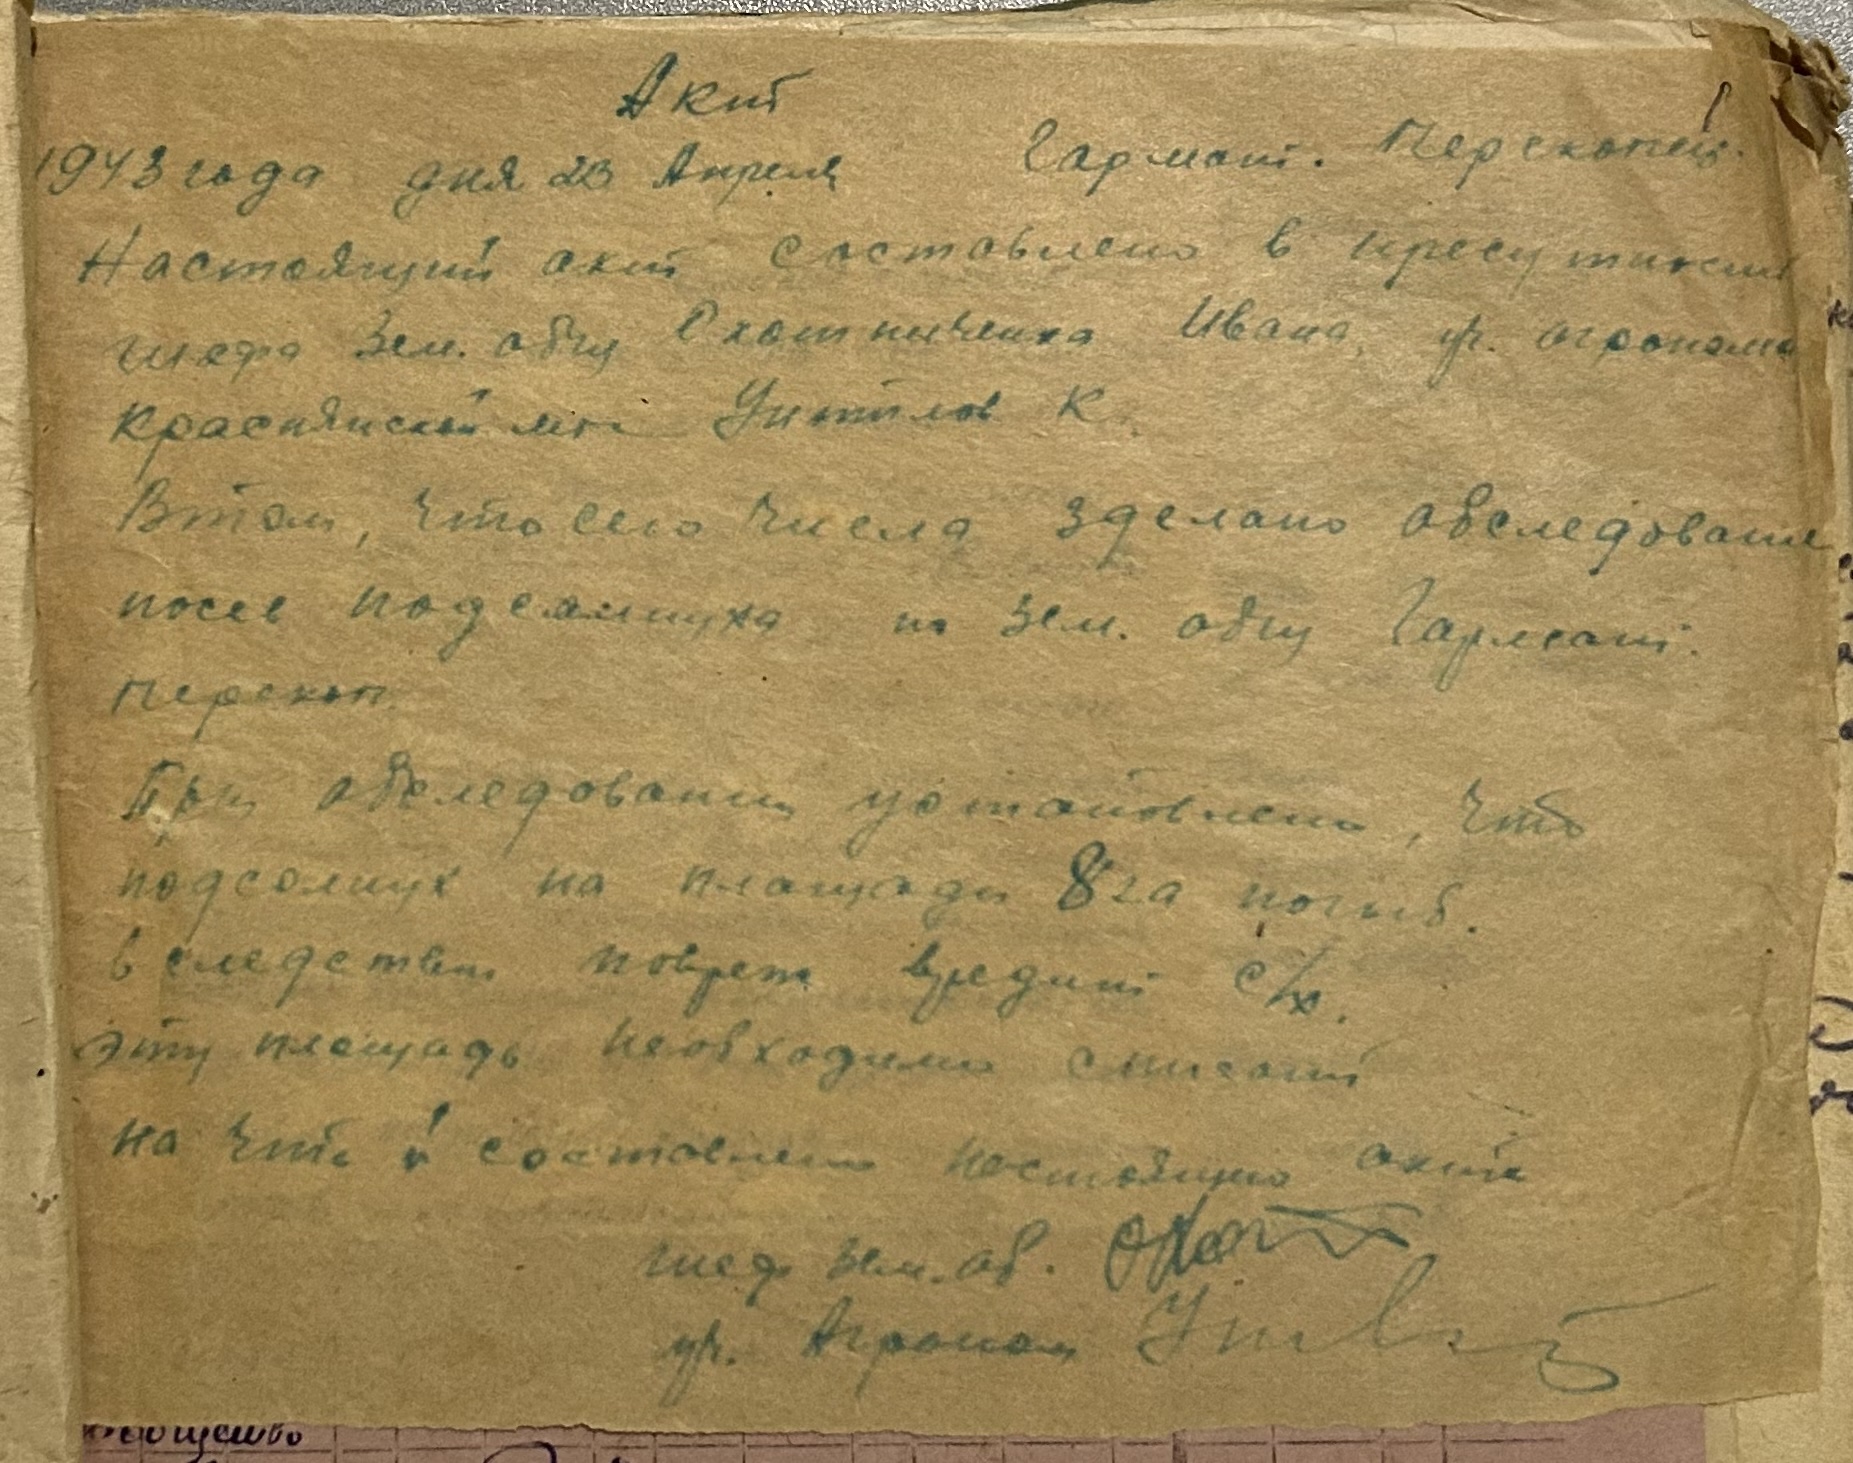 Акт
1943 года дня 23 Апреля Гармат. Перекопец.
Настоящий акт составлено в пресутности
шефа Зем. общ Охотниченка Ивана, уч. агронома
Краснянской мтс К.
Втом, что сего числа зделано обследование
посев подсолнуха по Зем. общ Гармат.
Перекоп.
При обследовании установлено, что
подсолнух на площади 8 га погиб.
вследствии повреж вредит с/х.
эту площадь необходимо списать
на что и составлено настоящий акт
шеф Зем. об.
уч. Агроном